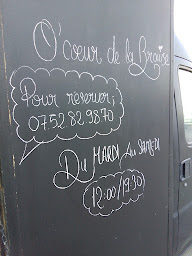 O'coeur de la Braise
Pour réserver;
07.52.82.9870
Du MARDI au SAMEDI
12:00/19:30